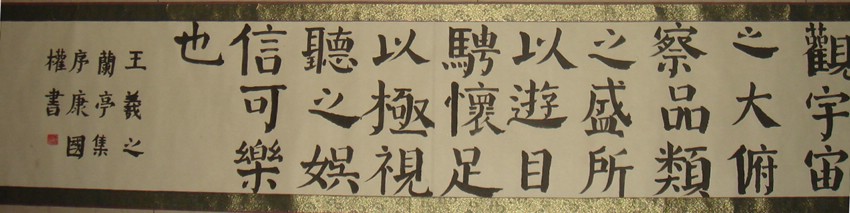 觀宇宙
之大俯
察品類
之盛所
以遊目
騁懷足
以極視
聽之娛
信可樂
也
王羲之
蘭亭集
序康國
權書